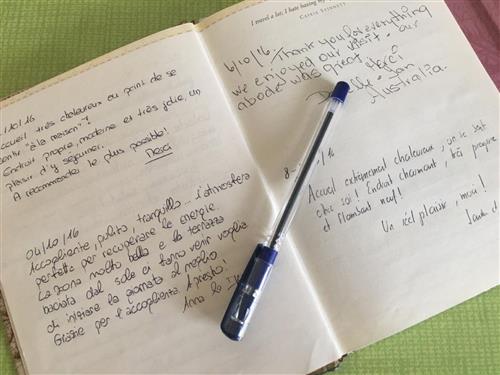 10/16
accueil très chaleureux au point de se
sentir "à la maison"!
Endroit propre, moderne et très jolie, un
plaisir d'y séjourner.
A recommander le plus possible!
Merci
04/10/16
Accogliente, pulito, tranquillo... l'atmosfera
perfetta per recuperare le energie.
La zona molto bella e la terrazza
baciata dal sole ci fanno venir voglia
di iniziare la giornata al meglio
Grazie per l'accoglienza. A presto!
Anna
I travel a lot; I hate having my
6/10/16. Thank you for everything
we enjoyed our visit - our
abode was great.
Merci
Australia.
8 - /16
Accueil extrêmement chaleureux, on se sent
chez soi! Endroit charmant, très propre
et flambant neuf!
Un réel plaisir, merci!